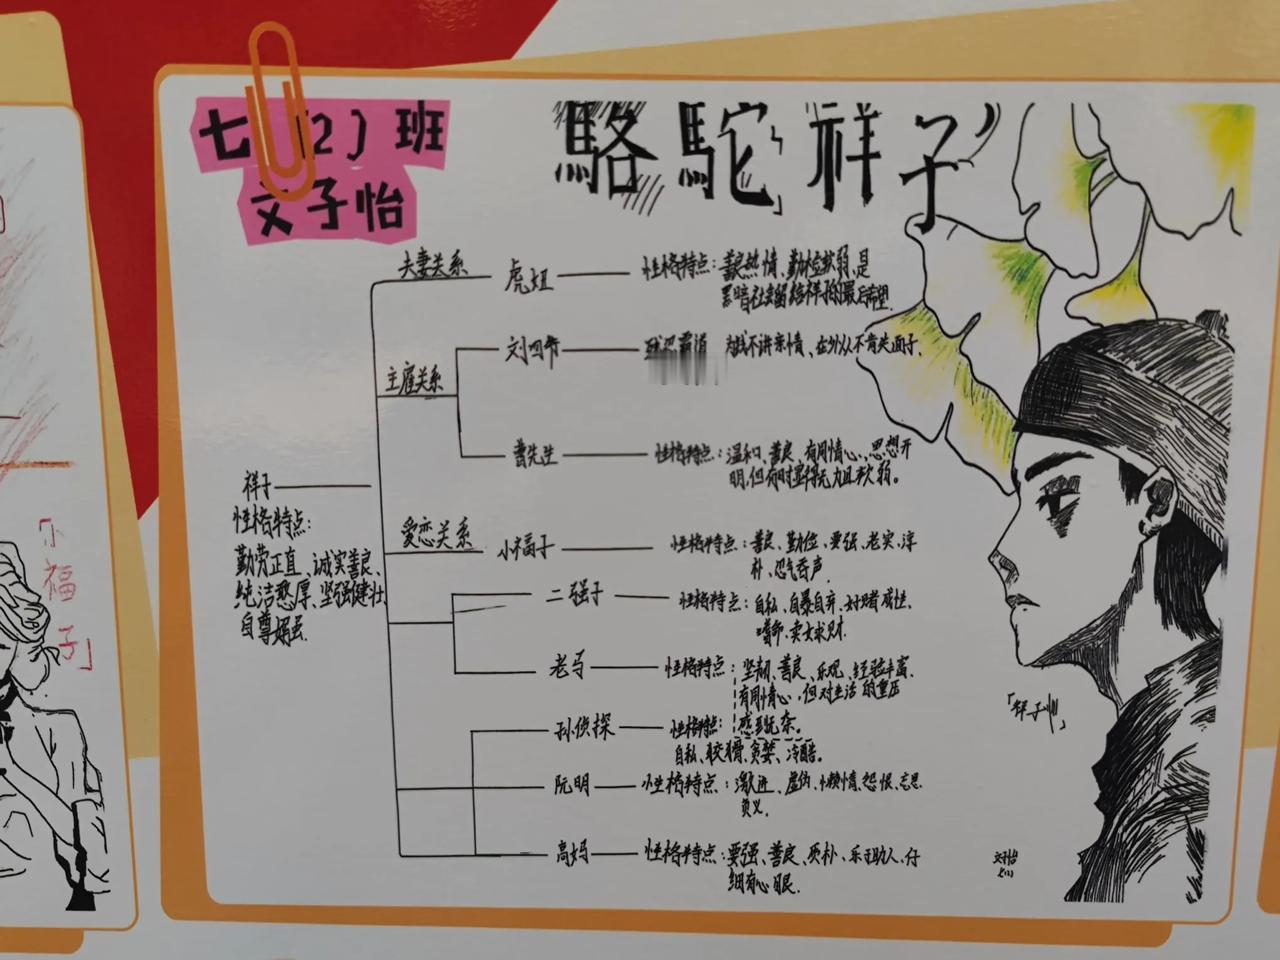 七(2)班
文子怡
駱駝祥子
夫妻关系
虎妞
性格特点：善良热情、勤俭软弱、是
黑暗社会留给祥子的最后希望.
主雇关系
刘四爷
为钱不讲亲情、在外从不肯失面子、
曹先生
性格特点：温和、善良、有同情心、思想开
明,但有时显得无力且软弱。
祥子
性格特点：
勤劳正直、诚实善良、
纯洁憨厚、坚强健壮、
自尊好强.
爱恋关系
小福子
性格特点：善良、勤俭、要强、老实、淳
朴、忍气吞声.
二强子
性格特点：自私、自暴自弃、好赌成性、
嗜命、卖女求财.
老马
性格特点：坚韧、善良、乐观、经验丰富、
有同情心,但对生活的重压
感到无奈。
孙侦探
性格特点：
自私、狡猾、贪婪、冷酷。
阮明
性格特点：激进、虚伪、懒惰、怨恨、忘恩
负义.
高妈
性格特点：要强、善良、质朴、乐于助人、仔
细有心眼.
「祥子」
文子怡
七(2)
「小福子」